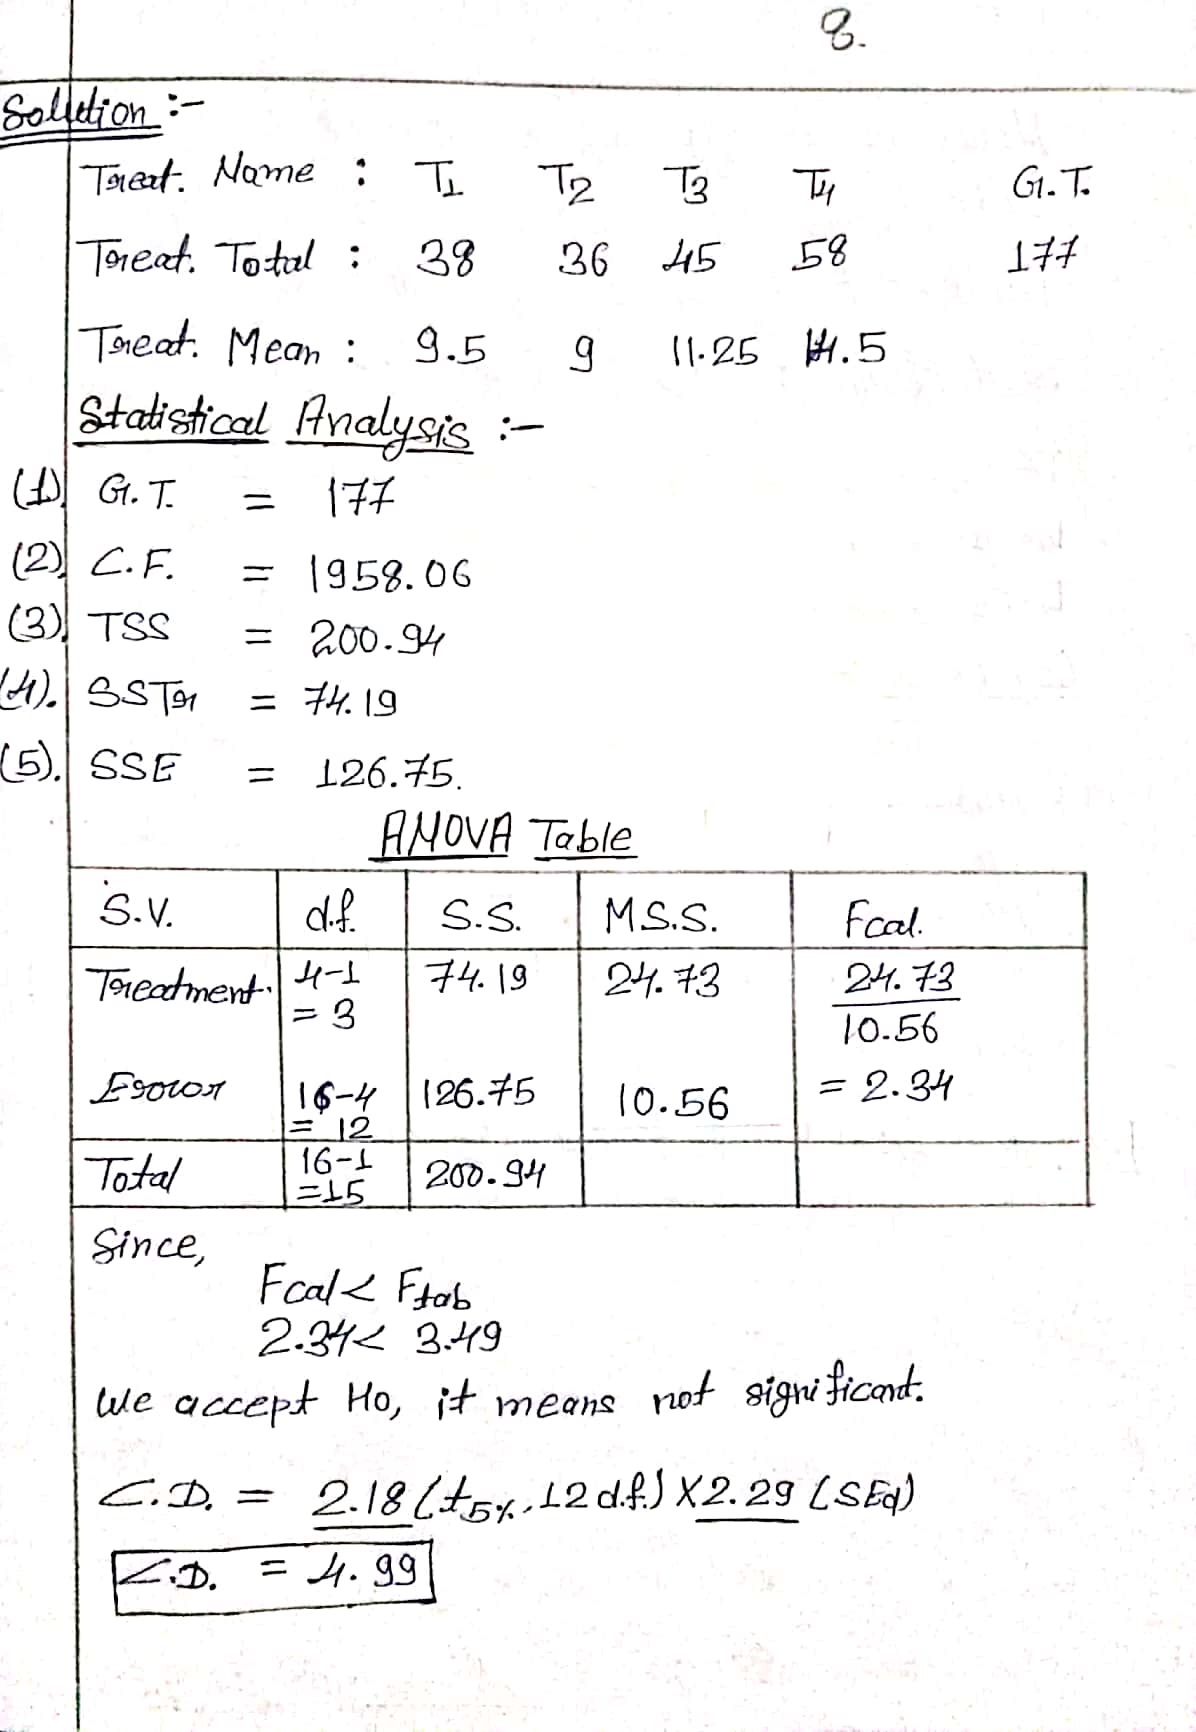 8.
Solution :-
Treat. Name : T1 T2 T3 T4 G.T.
Treat. Total : 38 36 45 58 177
Treat. Mean : 9.5 9 11.25 14.5
Statistical Analysis :-
(1) G.T. = 177
(2) C.F. = 1958.06
(3) TSS = 200.94
(4). SSTr = 74.19
(5). SSE = 126.75.
ANOVA Table
S.V. d.f. S.S. M.S.S. Fcal.
Treatment. 4-1 = 3 74.19 24.73 24.73 / 10.56
Error 16-4 = 12 126.75 10.56 = 2.34
Total 16-1 =15 200.94
Since,
Fcal < Ftab
2.34 < 3.49
We accept Ho, it means not significant.
C.D. = 2.18 (t5%, 12 d.f.) X 2.29 (SEd)
C.D. = 4.99